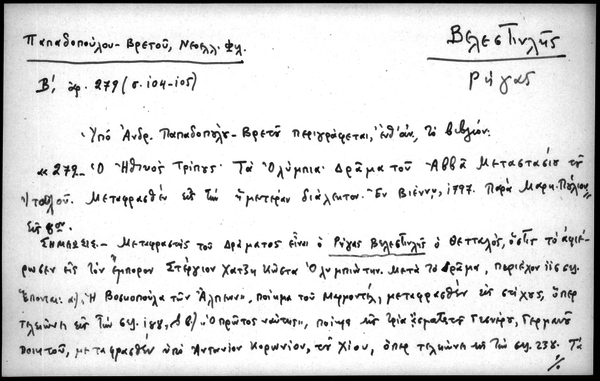 Παπαδοπούλου-Βρετοῦ, Νεοελλ. Φλ.
Βελεστινλῆς
Ρήγας
Β', ἀρ. 279 (σ. 104-105)
Ὑπὸ Ἀνδρ. Παπαδοπούλου-Βρετοῦ περιγράφεται, τὸ βιβλίον:
«279- Ὁ Ἠθικὸς Τρίπους. Τὰ Ὀλύμπια. Δρᾶμα τοῦ Ἀββᾶ Μεταστασίου τοῦ
Ἰταλοῦ. Μεταφρασθὲν εἰς τὴν ἡμετέραν διάλεκτον. Ἐν Βιέννῃ, 1797. Παρὰ Μαρκ. Πούλιου,
εἰς 8ον.
Σημείωσις.- Μεταφραστὴς τοῦ Δράματος εἶναι ὁ Ρήγας Βελεστινλῆς ὁ Θετταλός, ὅστις τὸ ἀφιέ-
ρωσεν εἰς τὸν ἔμπορον Στέργιον Χατζῆ Κώστα Ὀλυμπιώτην. Μετὰ τὸ δρᾶμα, περιέχον σελ.
Ἕπονται: α), Ἡ Βοσκοπούλα τῶν Ἄλπεων", ποίημα τοῦ Μαρμοντέλ, μεταφρασθὲν εἰς στίχους, ὅπερ
τελειώνει εἰς τὴν σελ. β) "Ὁ πρῶτος ναύτης", ποίημα εἰς τρία ᾄσματα Γεσνέρου, Γερμανοῦ
ποιητοῦ, μεταφρασθὲν ὑπὸ Ἀντωνίου Κορωνίου, τοῦ Χίου, ὅπερ τελειώνει εἰς τὴν σελ. 238. Τὰ
./.